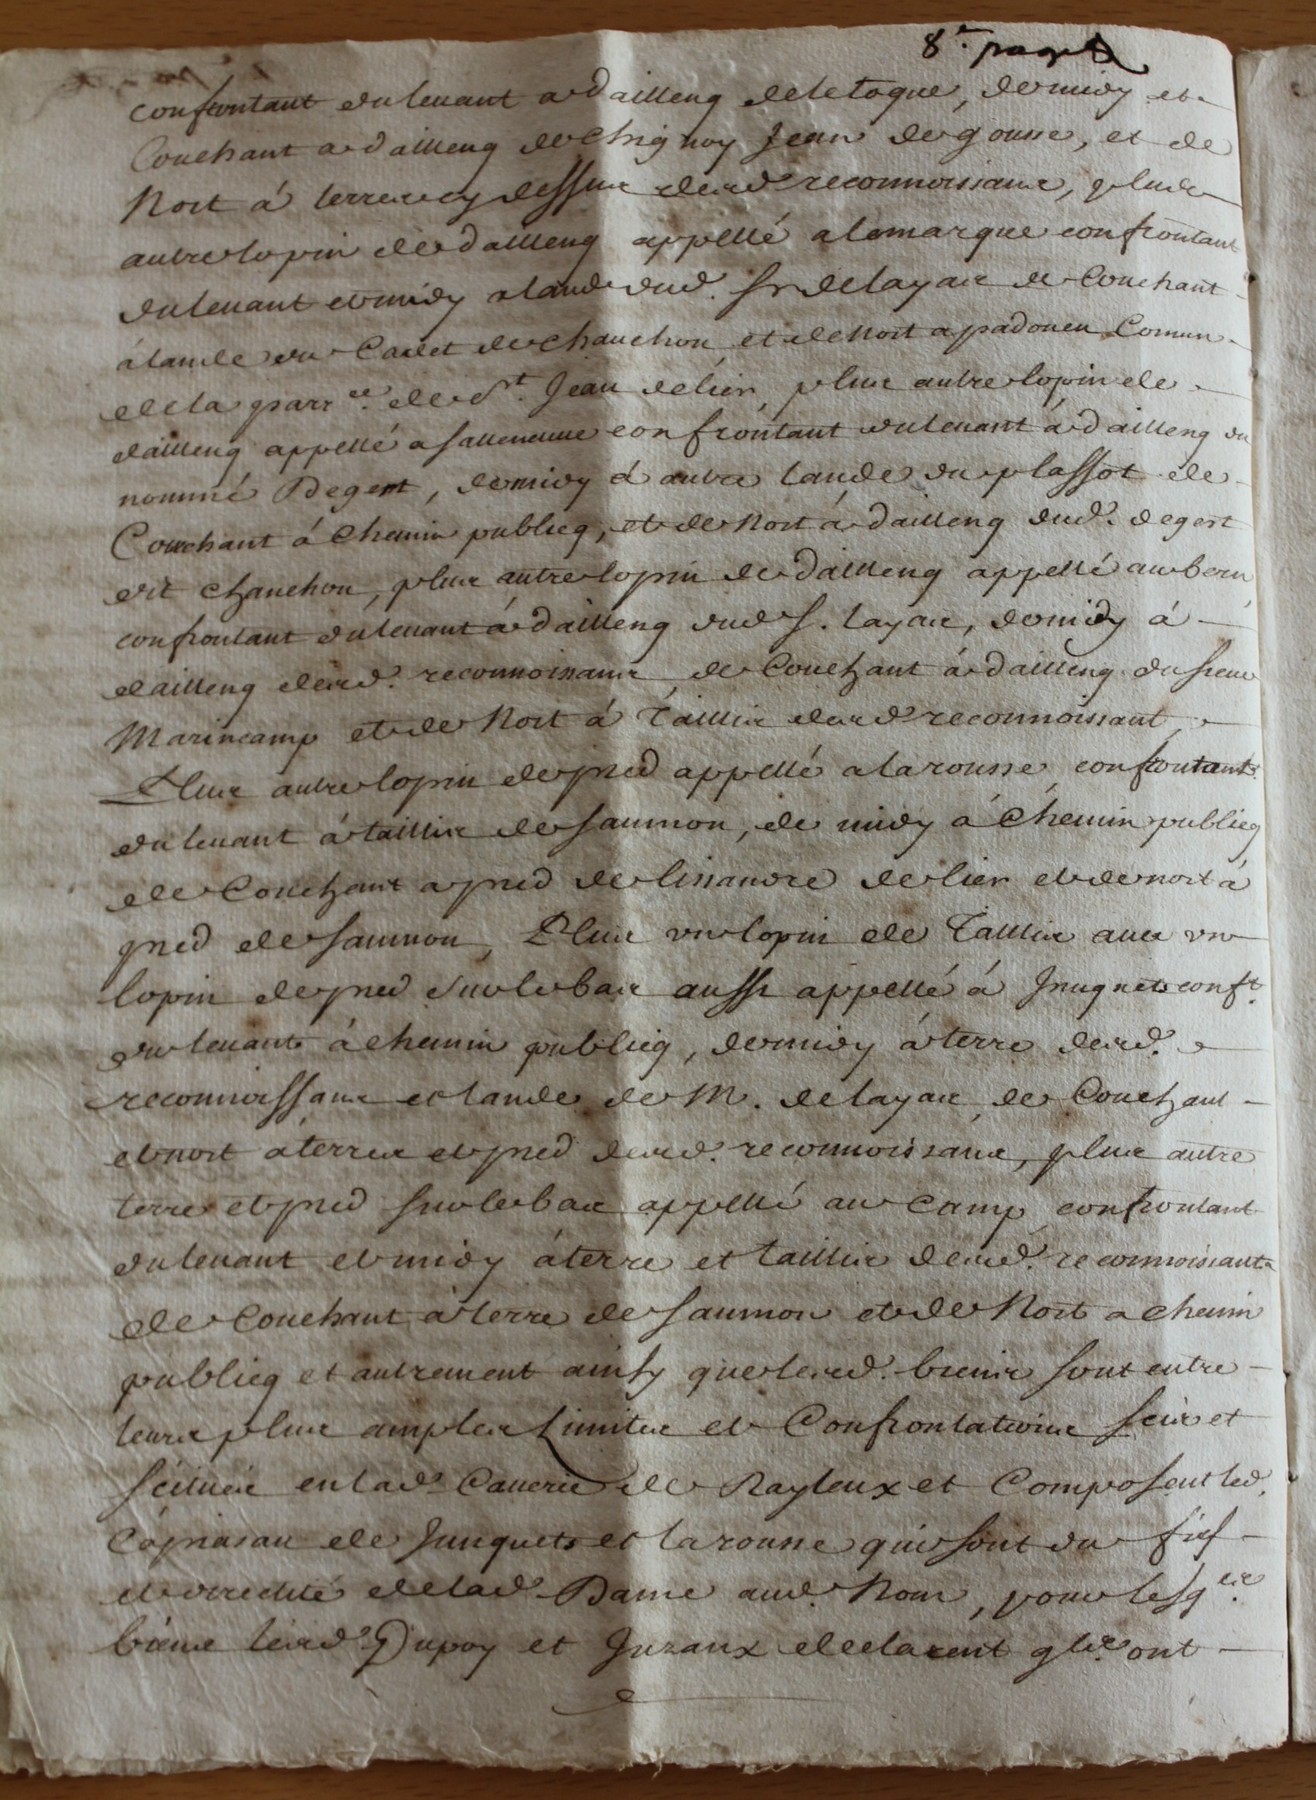 8e. page
confrontant du leuant a dailleng de letoque, de midy et
Couchant a dailleng de Chignoy Jean degousse, et de
Nort á terres cy dessus desd. reconnoissans, plus
autre lopin de dailleng appellé a lamarque confrontant
du leuant et midy a lande dud. Sr. delayas de Couchant
á lande du Cadet de chanchon et de Nort a padouen Comun
de la parr.ce de St. Jean delier, plus autre lopin de
dailleng appellé a salleneuue confrontant du leuant á dailleng du
nommé Degert, de midy á autre lande du plassot de
Couchant á Chemin publicq, et de Nort á dailleng dud. degert
dit chanchon, plus autre lopin de dailleng appellé au bern
confrontant du leuant á dailleng dud. S. layas, de midy á
dailleng desd. reconnoissans, de Couchant á dailleng du sieur
Marincamp et de Nort á Taillis desd. reconnoissant
Plus autre lopin de pred appellé a larousse confrontant
du leuant á taillis de saumon, de midy á Chemin publicq
de Couchant a pred de lisandre delier et de nort á
pred de saumon, Plus vn lopin de Taillis auec vn
lopin de pred sur le bas aussi appellé á Junquets conft.
du leuant á chemin publicq, de midy á terre desd.
reconnoissans et lande de M. delayas, de Couchant
et nort á terres et pred desd. reconnoissans, plus autre
terre et pred sur le bas appellé au Camp confrontant
du leuant et midy á terre et taillis desd. reconnoissant
de Couchant á terre de saumon et de Nort a chemin
publicq et autrement ainsy que lesd. biens sont entre
leurs plus amples Limites et Confrontations scis et
scitués en lad. Cauerie de Nayleux et Composent led.
Capnasau de Junquets et larousse qui sont du fief
et directité de lad. Dame aud. Nom, pour lesq.els
biens lesd. Dupoy et Juzanx declarent q.ls ont